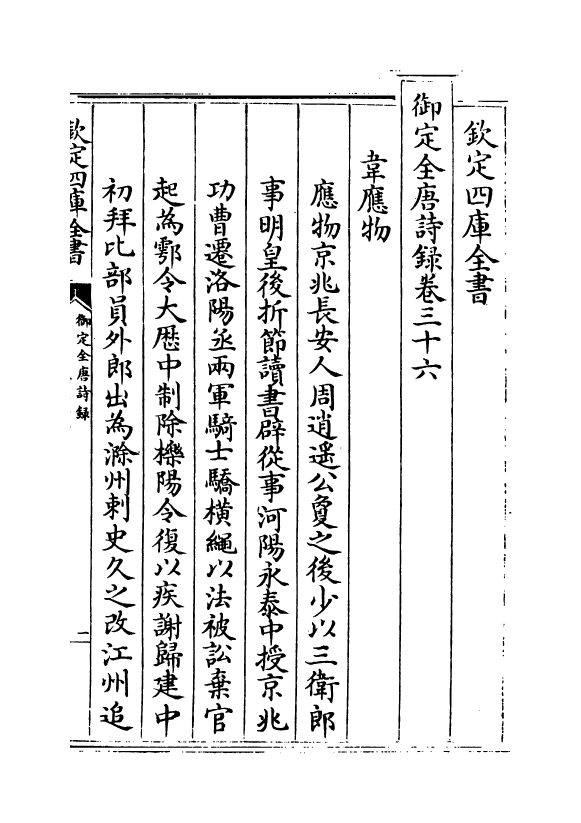 欽定四庫全書
御定全唐詩録卷三十六
韋應物
應物京兆長安人周逍遥公敻之後少以三衛郎
事明皇後折節讀書辟從事河陽永泰中授京兆
功曹遷洛陽丞兩軍騎士驕横繩以法被訟棄官
起為鄠令大歴中制除櫟陽令復以疾謝歸建中
初拜比部員外郎出為滁州刺史久之改江州追
欽定四庫全書
御定全唐詩録